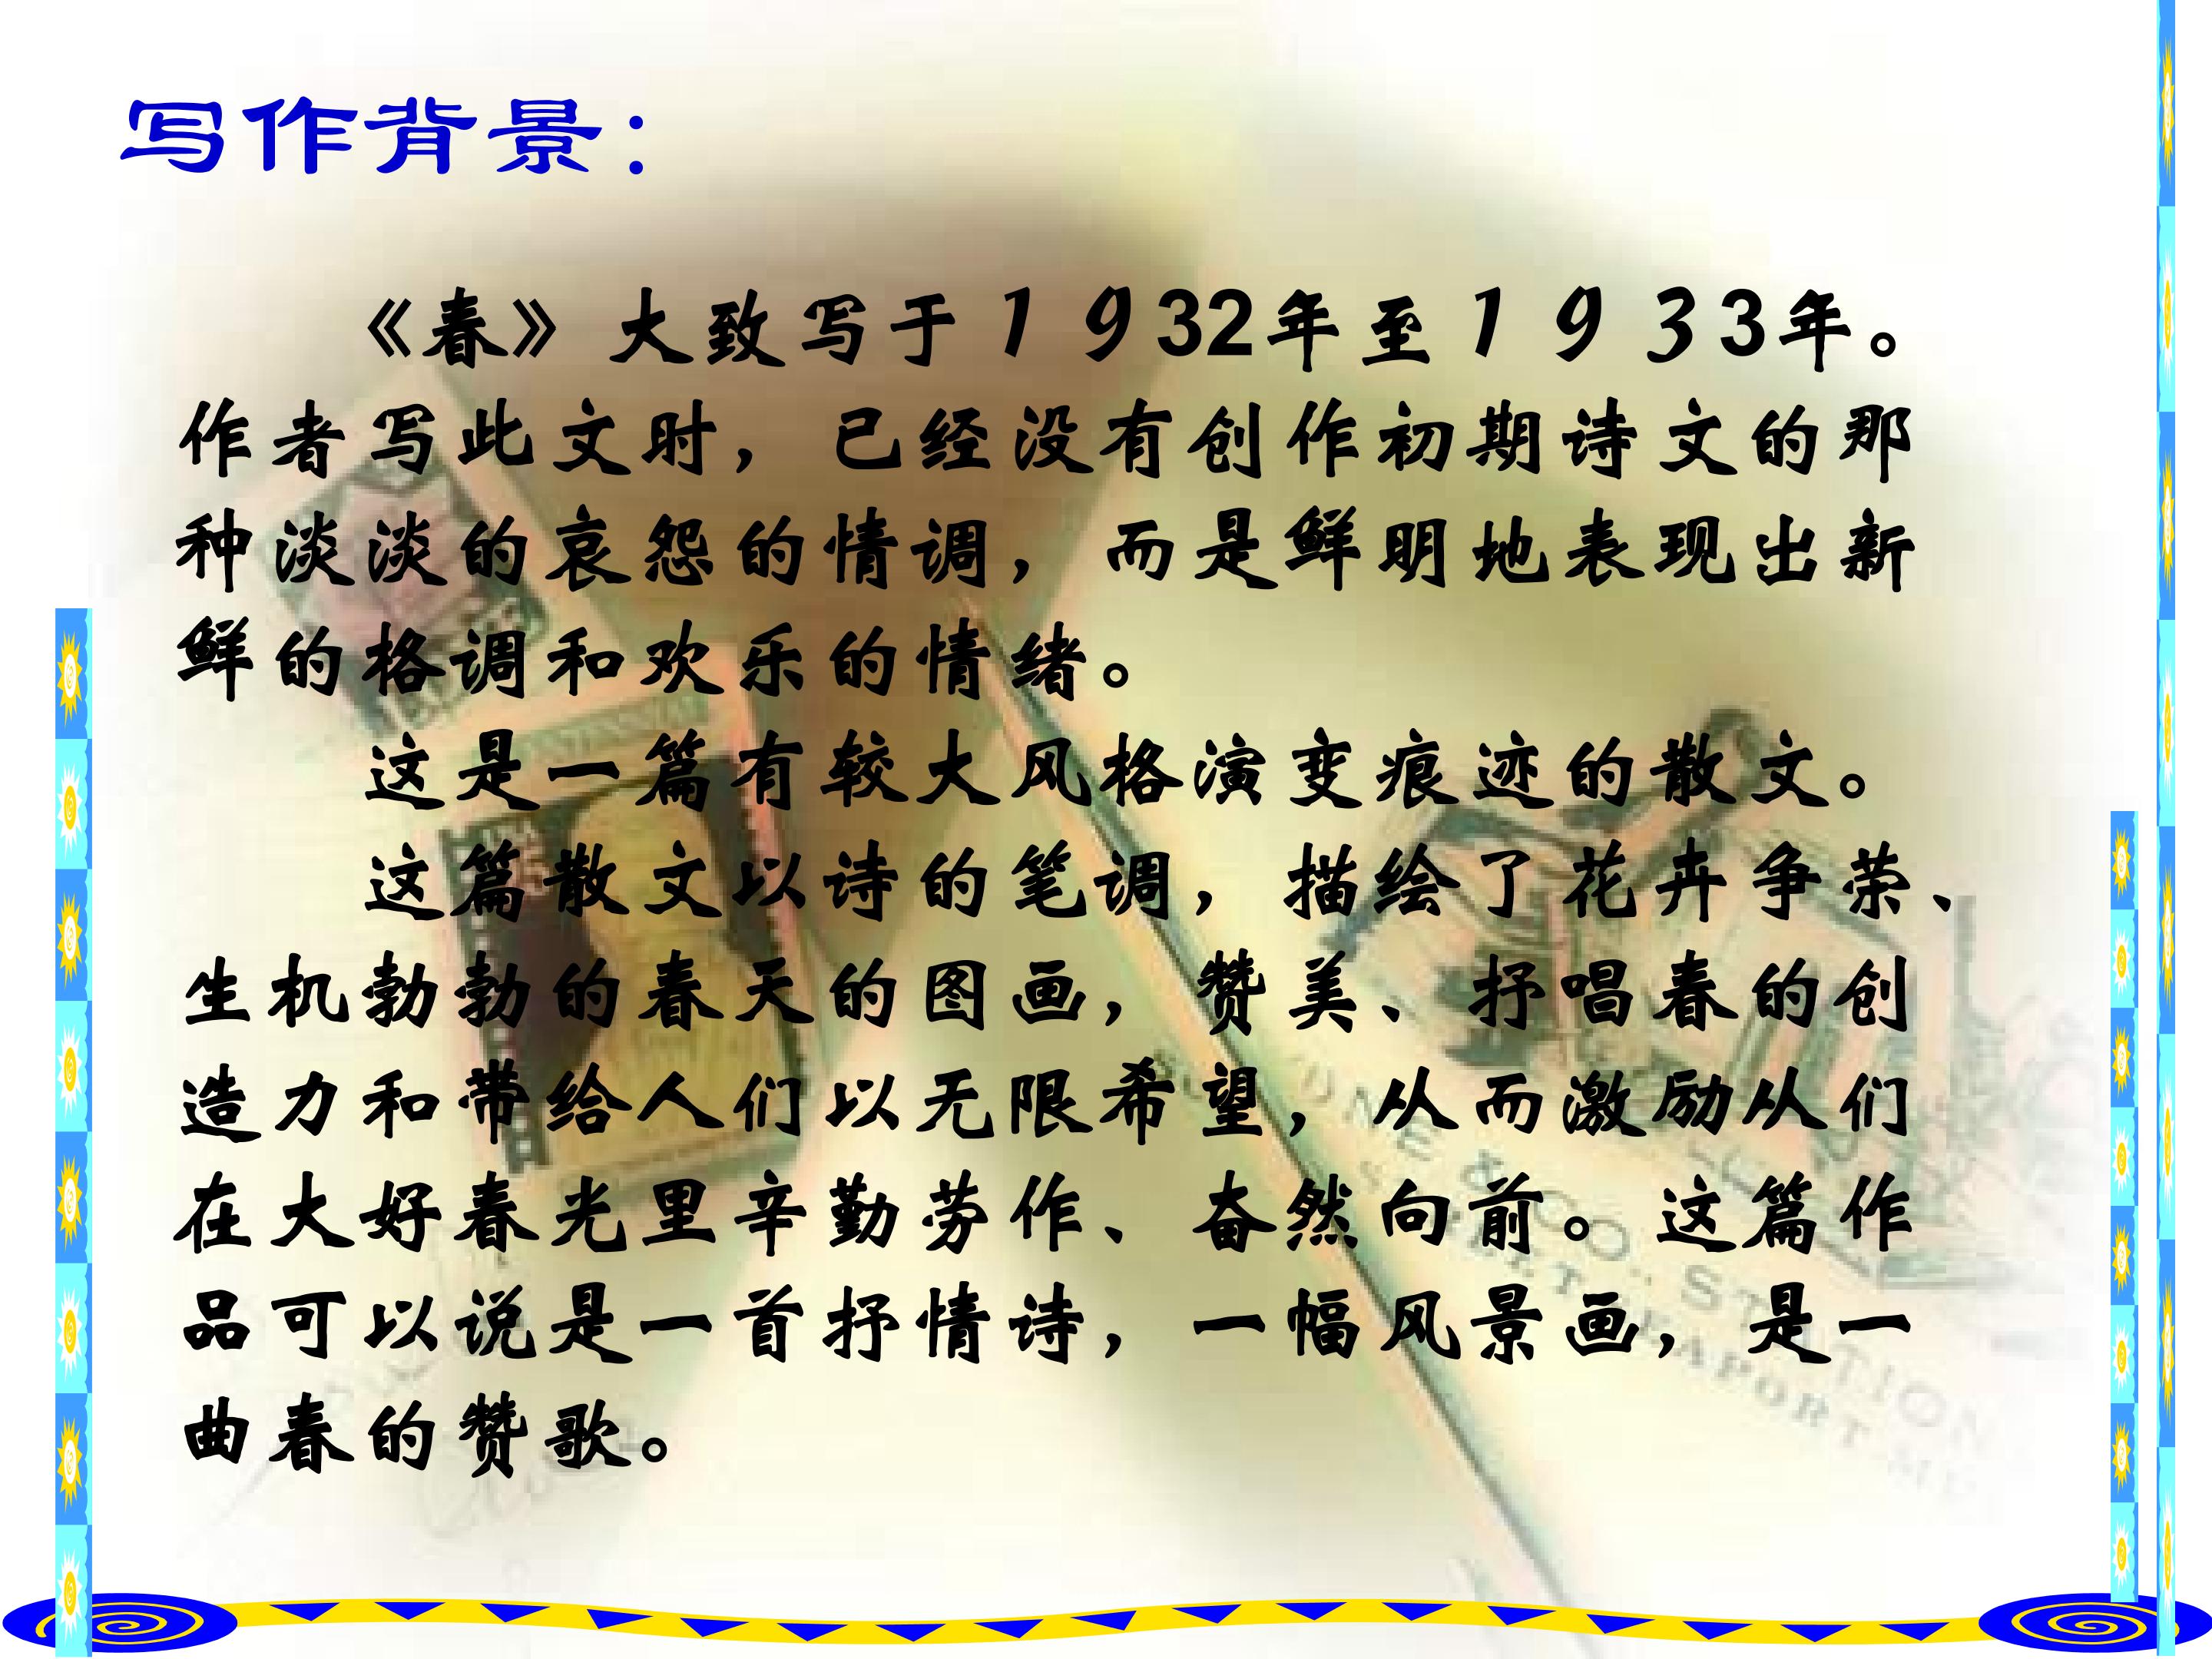 写作背景：
《春》大致写于１９32年至１９３3年。
作者写此文时，已经没有创作初期诗文的那
种淡淡的哀怨的情调，而是鲜明地表现出新
鲜的格调和欢乐的情绪。
这是一篇有较大风格演变痕迹的散文。
这篇散文以诗的笔调，描绘了花卉争荣、
生机勃勃的春天的图画，赞美、抒唱春的创
造力和带给人们以无限希望，从而激励从们
在大好春光里辛勤劳作、奋然向前。这篇作
品可以说是一首抒情诗，一幅风景画，是一
曲春的赞歌。